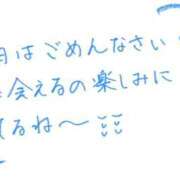 日はごめんなさい
会えるの楽しみに
てるね〜